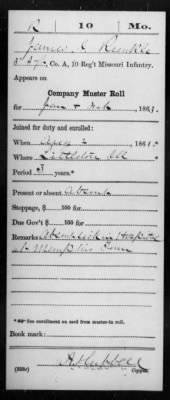 R | 10 | Mo.
James
Co. A, 10 Reg't Missouri Infantry.
Appears on
Company Muster Roll
for Jan & Feb, 1863.
Joined for duty and enrolled:
When 2, 1861.*
Where Ills
Period 3 years.*
Present or absent Absent
Stoppage, $ 100 for
Due Gov't $ 100 for
Remarks: Absent sick in Hospital
at Memphis Tenn
* See enrollment on card from muster-in roll.
Book mark:
(358c) Copyist.